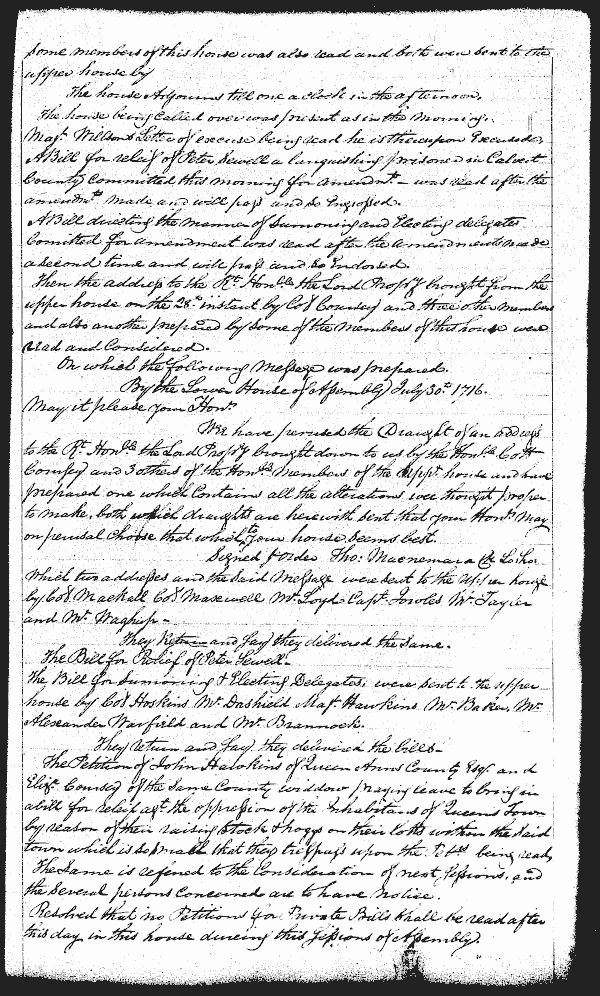 some members of this house was also read and both were sent to the
upper house by
The house Adjourns till one a clock in the afternoon.
The house being Called over was present as in the Morning.
Majr. Willsons Letter of excuse being read he is thereupon Excused.
A Bill for relief of Peter Sewell a languishing prisoner in Calvert
County Committed this morning for amendmt. - was read after the
amendmts. made and will pass and be Engrossed.
A Bill directing the manner of Summoning and Electing delegates
Comitted for amendment was read after the amendments made
a second time and will pass and be Endorsed.
Then the address to the Rt. Honble. the Lord Propry brought from the
upper house on the 28th. instant by Col Coursey and three other members
and also another prepared by some of the Members of this house were
read and Considered.
On which the following Message was prepared.
By the Lower House of Assembly July 30th. 1716.
May it please your Honrs.
We have perused the Draught of an address
to the Rt. Honble. the Lord Propry brought down to us by the Honble. Coll
Coursey and 3 others of the Honble. Members of the uppr. house and have
prepared one which Contains all the alterations wee thought proper
to make, both which draughts are herewith sent that your Honrs. May
on perusal Choose that which to your house seems best.
Signed p order Tho: Macnemara Ck Lo: ho:
Which two addresses and the said Message were sent to the Upper house
by Col Mackall Col Maxwell Mr. Loyd Capt. Sowles Mr. Taylor
and Mr. Waghop -
They Return and say they delivered the Same.
The Bill for Relief of Peter Sewell -
The Bill for Sumoning & Electing Delegates were sent to the upper
house by Col Hoskins Mr. Dashield Majr. Hawkins Mr. Baker, Mr.
Alexander Warfield and Mr. Brannock.
They return and say they delivered the bills -
The Petition of John Hawkins of Queen Anns County Esqr. and
Elizt. Coursey of the same County widdow praying leave to bring in
a bill for relief agt. the oppression of the Inhabitants of Queens Town
by reason of their raising Stock & hoggs on their lotts within the said
town which is so small that they trespass upon the being read,
The Same is referred to the Consideration of next Sessions, and
the Several persons Concerned are to have notice.
Resolved that no Petitions for Private Bills shall be read after
this day in this house dureing this Sessions of Assembly.